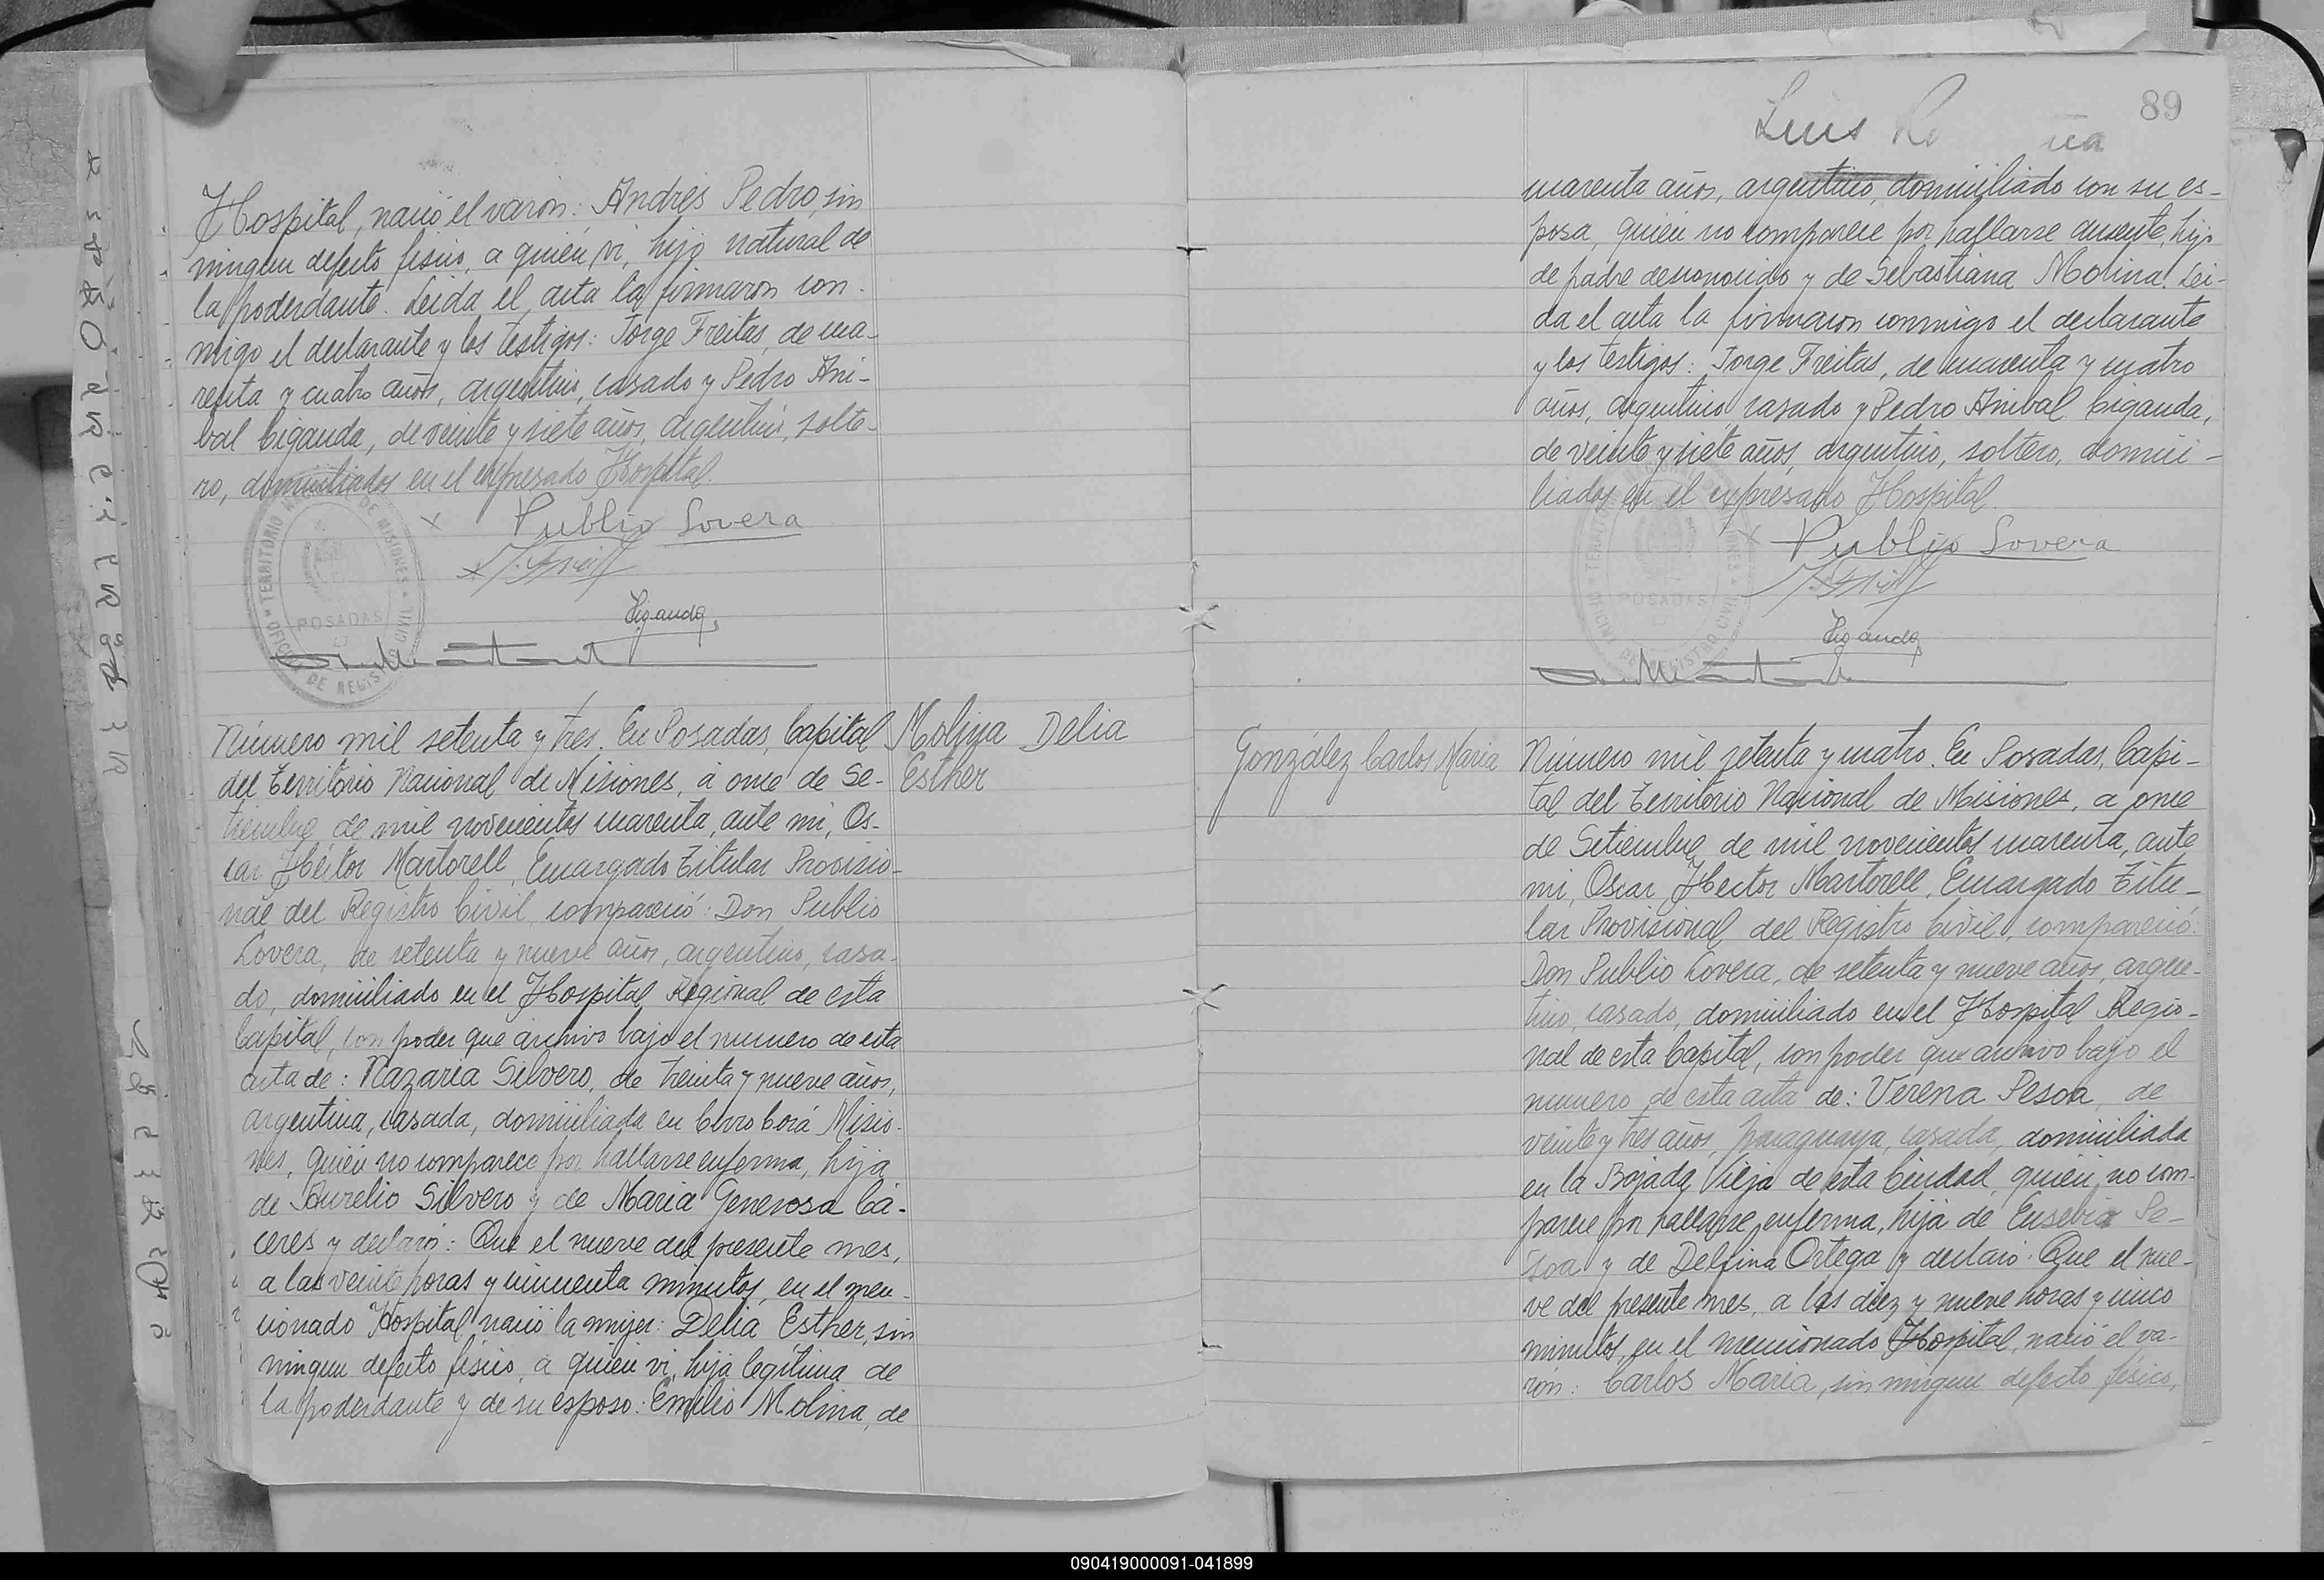 Hospital, nació el varón: Andrés Pedro, sin
ningun defecto fisico, a quién vi, hijo natural de
la poderdante. Leida el acta la firmaron con-
migo el declarante y los testigos: Jorge Freitas, de cua-
renta y cuatro años, argentino, casado y Pedro Ani-
bal Ciganda, de veinte y siete años, argentino, solte-
ro, domiciliados en el expresado Hospital.
Publio Lovera
Ciganda
TERRITORIO DE MISIONES
POSADAS
OFICINA DE REGISTRO CIVIL
Número mil setenta y tres. En Posadas, Capital
del Territorio Nacional de Misiones, á once de Se-
tiembre de mil novecientos cuarenta, ante mi, Os-
car Héctor Martorell, Encargado Titular Provisio-
nal del Registro Civil, compareció: Don Publio
Lovera, de setenta y nueve años, argentino, casa-
do, domiciliado en el Hospital Regional de esta
Capital, con poder que archivo bajo el numero de esta
acta de: Nazaria Silvero, de treinta y nueve años,
argentina, casada, domiciliada en Cerro Corá Misio-
nes, quién no comparece por hallarse enferma, hija
de Aurelio Silvero y de Maria Generosa Cá-
ceres y declaró: Que el nueve del presente mes,
a las veinte horas y cincuenta minutos, en el men-
cionado Hospital nació la mujer: Delia Esther, sin
ningun defecto fisico, a quién vi, hija legítima de
la poderdante y de su esposo: Emilio Molina, de
Molina Delia
Esther
89
Luis
cuarenta años, argentino, domiciliado con su es-
posa, quién no comparece por hallarse ausente, hijo
de padre desconocido y de Sebastiana Molina. Lei-
da el acta la firmaron conmigo el declarante
y los testigos: Jorge Freitas, de cuarenta y cuatro
años, argentino, casado y Pedro Anibal Ciganda,
de veinte y siete años, argentino, soltero, domici-
liados en el expresado Hospital.
Publio Lovera
Ciganda
POSADAS
González Carlos Maria
Número mil setenta y cuatro. En Posadas, Capi-
tal del Territorio Nacional de Misiones, a once
de Setiembre de mil novecientos cuarenta, ante
mi, Oscar Hector Martorell, Encargado Titu-
lar Provisional del Registro Civil, compareció:
Don Publio Lovera, de setenta y nueve años, argen-
tino, casado, domiciliado en el Hospital Regio-
nal de esta Capital, con poder que archivo bajo el
numero de esta acta de: Verena Pesoa, de
veinte y tres años, paraguaya, casada, domiciliada
en la Bajada Vieja de esta Ciudad, quién no com-
parece por hallarse enferma, hija de Eusebio Pe-
soa y de Delfina Ortega y declaró: Que el nue-
ve del presente mes, a las diez y nueve horas y cinco
minutos, en el mencionado Hospital, nació el va-
rón: Carlos Maria, sin ningun defecto físico,
090419000091-041899